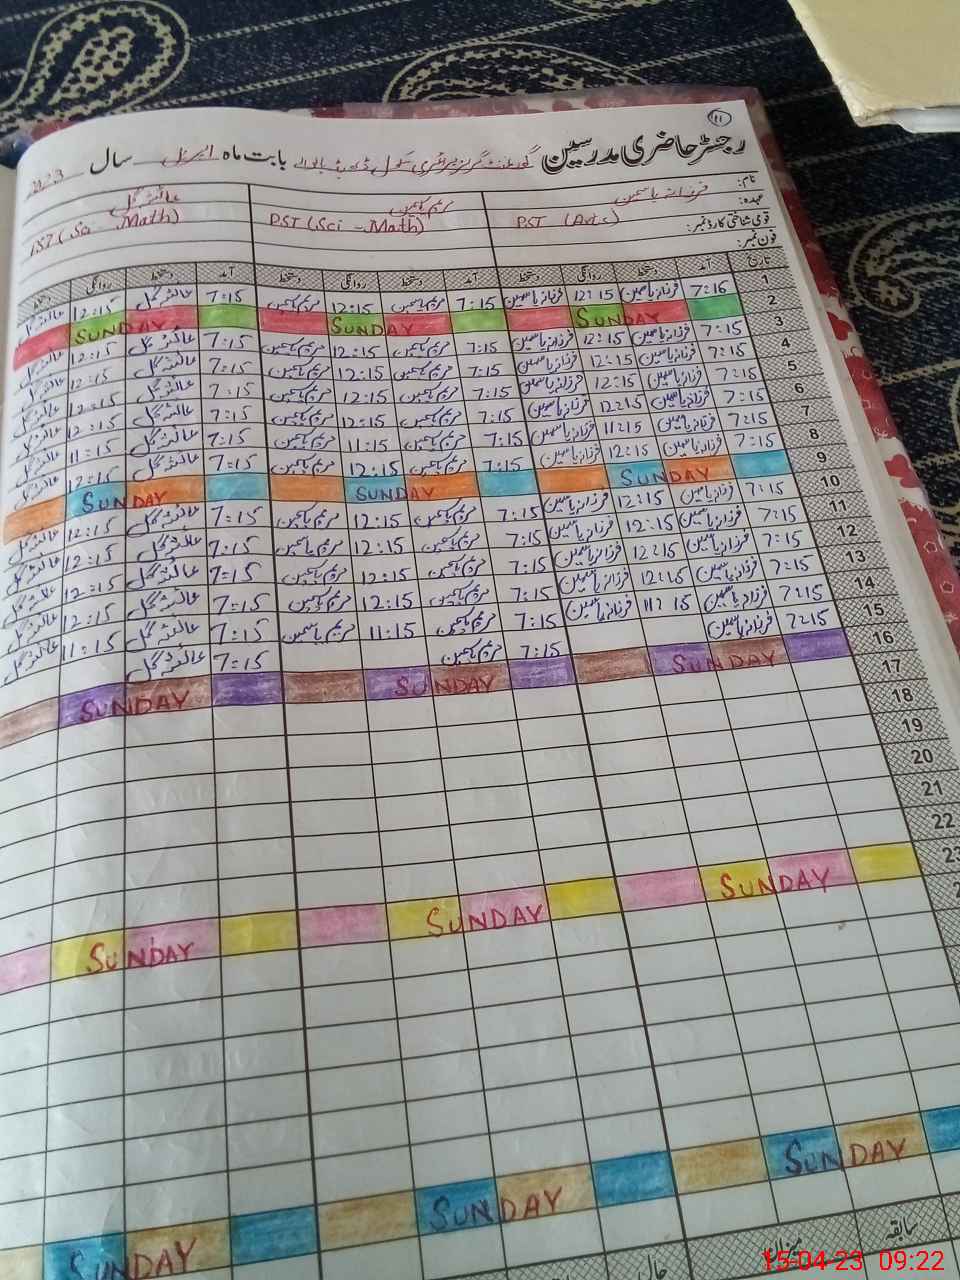 ۱۱
رجسٹر حاضری مدرسین گورنمنٹ گرلز پرائمری سکول بابت ماہ اپریل سال 2023
نام: فرزانہ یاسمین مریم یاسمین عائشہ گل
عہدہ: PST (Arts) PST (Sci - Math) PST (Sci - Math)
قومی شناختی کارڈ نمبر:
فون نمبر:
تاریخ آمد دستخط روانگی دستخط آمد دستخط روانگی دستخط آمد دستخط روانگی دستخط
1 7:15 فرزانہ یاسمین 12:15 فرزانہ یاسمین 7:15 مریم یاسمین 12:15 مریم یاسمین 7:15 عائشہ گل 12:15 عائشہ گل
2 SUNDAY SUNDAY SUNDAY
3 7:15 فرزانہ یاسمین 12:15 فرزانہ یاسمین 7:15 مریم یاسمین 12:15 مریم یاسمین 7:15 عائشہ گل 12:15 عائشہ گل
4 7:15 فرزانہ یاسمین 12:15 فرزانہ یاسمین 7:15 مریم یاسمین 12:15 مریم یاسمین 7:15 عائشہ گل 12:15 عائشہ گل
5 7:15 فرزانہ یاسمین 12:15 فرزانہ یاسمین 7:15 مریم یاسمین 12:15 مریم یاسمین 7:15 عائشہ گل 12:15 عائشہ گل
6 7:15 فرزانہ یاسمین 12:15 فرزانہ یاسمین 7:15 مریم یاسمین 12:15 مریم یاسمین 7:15 عائشہ گل 12:15 عائشہ گل
7 7:15 فرزانہ یاسمین 11:15 فرزانہ یاسمین 7:15 مریم یاسمین 11:15 مریم یاسمین 7:15 عائشہ گل 11:15 عائشہ گل
8 7:15 فرزانہ یاسمین 12:15 فرزانہ یاسمین 7:15 مریم یاسمین 12:15 مریم یاسمین 7:15 عائشہ گل 12:15 عائشہ گل
9 SUNDAY SUNDAY SUNDAY
10 7:15 فرزانہ یاسمین 12:15 فرزانہ یاسمین 7:15 مریم یاسمین 12:15 مریم یاسمین 7:15 عائشہ گل 12:15 عائشہ گل
11 7:15 فرزانہ یاسمین 12:15 فرزانہ یاسمین 7:15 مریم یاسمین 12:15 مریم یاسمین 7:15 عائشہ گل 12:15 عائشہ گل
12 7:15 فرزانہ یاسمین 12:15 فرزانہ یاسمین 7:15 مریم یاسمین 12:15 مریم یاسمین 7:15 عائشہ گل 12:15 عائشہ گل
13 7:15 فرزانہ یاسمین 12:15 فرزانہ یاسمین 7:15 مریم یاسمین 12:15 مریم یاسمین 7:15 عائشہ گل 12:15 عائشہ گل
14 7:15 فرزانہ یاسمین 11:15 فرزانہ یاسمین 7:15 مریم یاسمین 11:15 مریم یاسمین 7:15 عائشہ گل 11:15 عائشہ گل
15 7:15 فرزانہ یاسمین 7:15 مریم یاسمین 7:15 عائشہ گل
16 SUNDAY SUNDAY SUNDAY
17
18
19
20
21
22
23 SUNDAY SUNDAY SUNDAY
SUNDAY SUNDAY SUNDAY
سابقہ
15-04-23 09:22